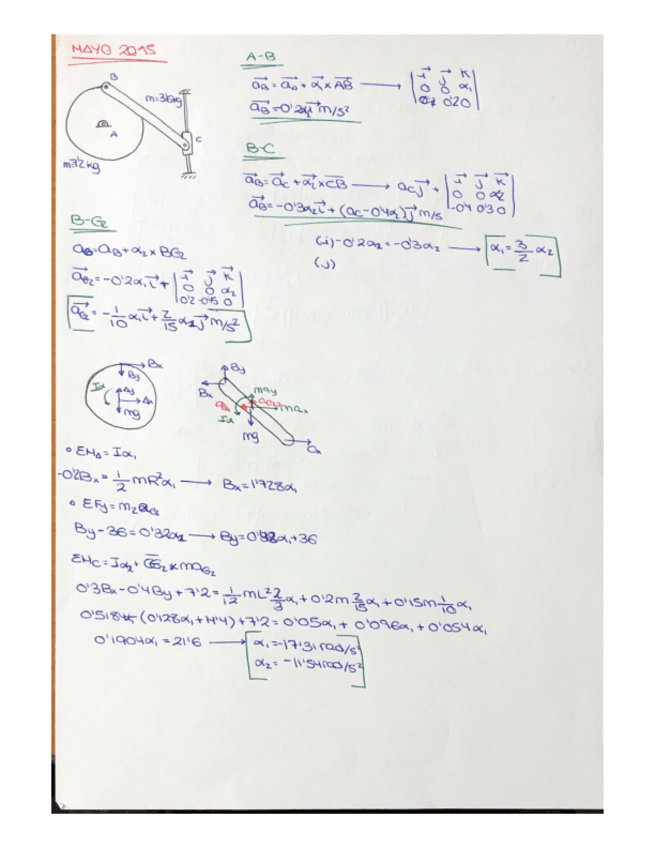 MAYO 2015
B
m=3'6kg
A
C
m=12kg
A-B
aB = aA + α x AB → | i j k | 0 0 α1 | 0 0'2 0 |
aB = -0'2α1 i m/s²
B-C
aB = aC + α2 x CB → aC j + | i j k | 0 0 α2 | -0'4 0'3 0 |
aB = -0'3α2 i + (aC - 0'4α2) j m/s
(i) -0'2α2 = -0'3α2 → α1 = 3/2 α2
(j)
B-G2
aB = aB + α2 x BG2
aG2 = -0'2α1 i + | i j k | 0 0 α2 | 0'2 -0'15 0 |
aG2 = -1/10 α1 i + 2/15 α1 j m/s²
Bx
By
Iα
Ay
Ax
mg
By
Bx
may
max
Iα
mg
Cx
• ΣMA = Iα1
-0'2Bx = 1/2 mR²α1 → Bx = 1'728α1
• ΣFy = m2aG2
By - 36 = 0'32α2 → By = α1 + 36
ΣMC = Iα2 + CG2 x maG2
0'3Bx - 0'4By + 7'2 = 1/12 mL² 2/3 α1 + 0'2m 2/15 α1 + 0'15m 1/10 α1
0'5184 (0'128α1 + 14'4) + 7'2 = 0'05α1 + 0'096α1 + 0'054α1
0'1904α1 = 21'6 → α1 = -17'31 rad/s²
α2 = -11'54 rad/s²